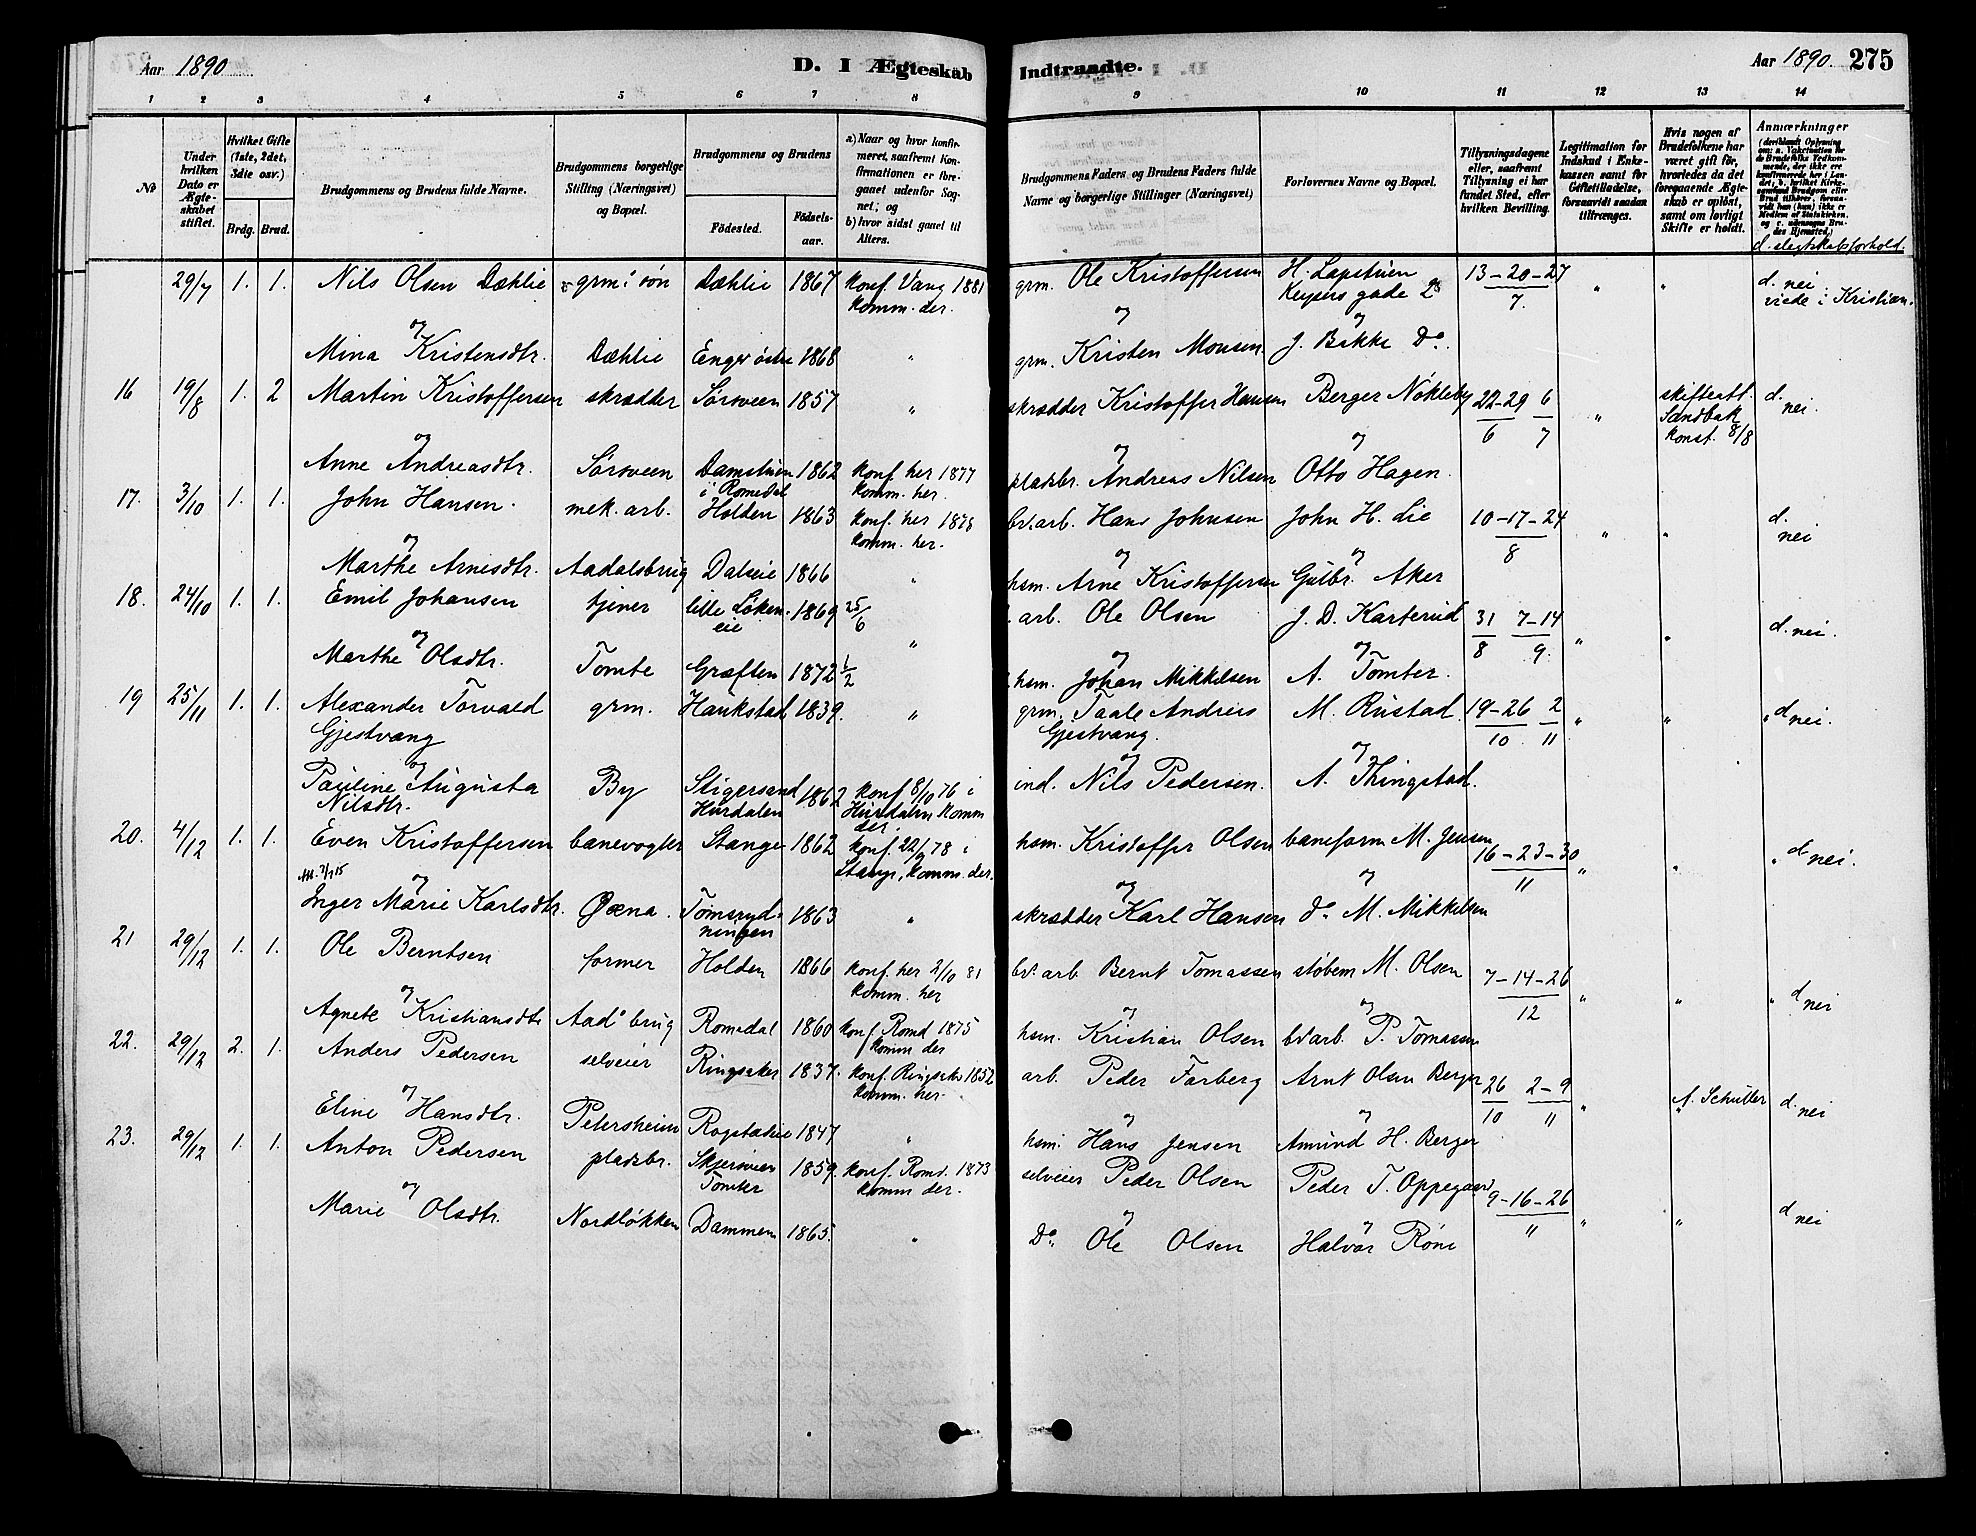 Aar 1890
D. I Ægteskab
Indtraadte.
Aar 1890. 275
1 2 3 4 5 6 7 8 9 10 11 12 13 14
No
Under hvilken Dato er Ægteskabet stiftet.
Hvilket Gifte (1ste, 2det, 3die osv.)
Brdg. Brud.
Brudgommens og Brudens fulde Navne.
Brudgommens borgerlige Stilling (Næringsvei) og Bopæl.
Brudgommens og Brudens
Fødested.
Fødselsaar.
a) Naar og hvor konfirmeret, saafremt Konfirmationen er foregaaet udenfor Sognet; og
b) hvor sidst gaaet til Alters.
Brudgommens Faders og Brudens Faders fulde Navne og borgerlige Stillinger (Næringsvei)
Forlovernes Navne og Bopæl.
Tillysningsdagene eller, saafremt Tillysning ei har fundet Sted, efter hvilken Bevilling.
Legitimation for Indskud i Enkekassen samt for Giftetilladelse, forsaavidt saadan tiltrænges.
Hvis nogen af Brudefolkene har været gift før, hvorledes da det foregaaende Ægteskab er opløst, samt om lovligt Skifte er holdt.
Anmærkninger
d. slegtskabsforhold.
29/7 1. 1. Nils Olsen Dæhlie grm: søn Dæhlie 1867 konf. Vang 1881 komm. der. grm. Ole Kristoffersen H. Lapstuen Keysers gade 13-20-27/7. " " d. nei. viede i Kristian.
og og og
Mina Kristensdtr. Dæhlie Enger østre 1868 " grm. Kristen Monsen J. Bakke Do.
16 19/8 1. 2 Martin Kristoffersen skrædder Sørsveen 1857 " skrædder Kristoffer Hansen Berger Nøkleby 22-29/6 6/7 " skifteatt. Sandbak konst. 8/8 d. nei.
og og og
Anne Andreasdtr. Sørsveen Damstuen i Romedal 1862 konf her 1877 komm. her. pladsbr. Andreas Nilsen Otto Hagen.
17. 3/10 1. 1. John Hansen. mek. arb. Holden 1863 konf. her 1878 komm. her. bv. arb. Hans Johnsen John H. Lie 10-17-24/8 " " d. nei
og og og
Marthe Arnesdtr. Aadalsbrug Dalseie 1866 " hsm. Arne Kristoffersen Gulbr. Aker
18. 24/10 1. 1. Emil Johansen tjener lille Løken eie 1869 25/6 arb. Ole Olsen J. D. Karterud 31/8 7-14/9. " " d. nei.
og og og
Marthe Olsdtr. Tomte Græften 1872 1/2 " hsm. Johan Mikkelsen A. Tomter.
19 25/11 1. 1. Alexander Torvald Gjestvang grm. Haukstad 1839. " grm. Taale Andreis Gjestvang. M. Rustad 19-26/10 2/11 " " " d nei.
og og og
Pauline Augusta Nilsdtr. By Stigersand Hurdalen 1862 konf 8/10 76 i Hurdalen komm der. ind. Nils Pedersen. A. Thingstad.
20. 4/12 1. 1. Even Kristoffersen banevogter Stange 1862 konf. 22/9 78 i Stange, komm. der. hsm. Kristoffer Olsen baneform M. Jensen 16-23-30/11 " " " d nei.
og og og
Inger Marie Karlsdtr. Øxna. Tomsrydningen 1863 " skrædder Karl Hansen do M. Mikkelsen
21 29/12 1. 1. Ole Berntsen former Holden 1866 konf. her 2/10 81 komm. her bv. arb Bernt Tomassen støbem M. Olsen 7-14-26/12 " " " d nei
og og og
Agnete Kristiansdtr Aads brug Romedal 1860 konf. Romd 1875 komm der hsm. Kristian Olsen bv arb. P. Tomassen
22. 29/12 2. 1. Anders Pedersen selveier Ringsaker 1837. konf. Ringsaker 1852 komm. her. arb. Peder Farberg Arnt Olsen Berger 26/10 2-9/11 " A. Schulter d. nei
og og og
Eline Hansdtr. Petersheim Rogstadeie 1847 " hsm: Hans Jensen Amund H. Berger
23. 29/12 1. 1. Anton Pedersen pladsbr. Skjersveen Tomter 1859. konf. Romd. 1873 komm der. selveier Peder Olsen Peder T. Oppegaard 9-16-26/11 " " d nei
og og og
Marie Olsdtr. Nordløkken Dammen 1865. " Do. Ole Olsen Halvor Røne